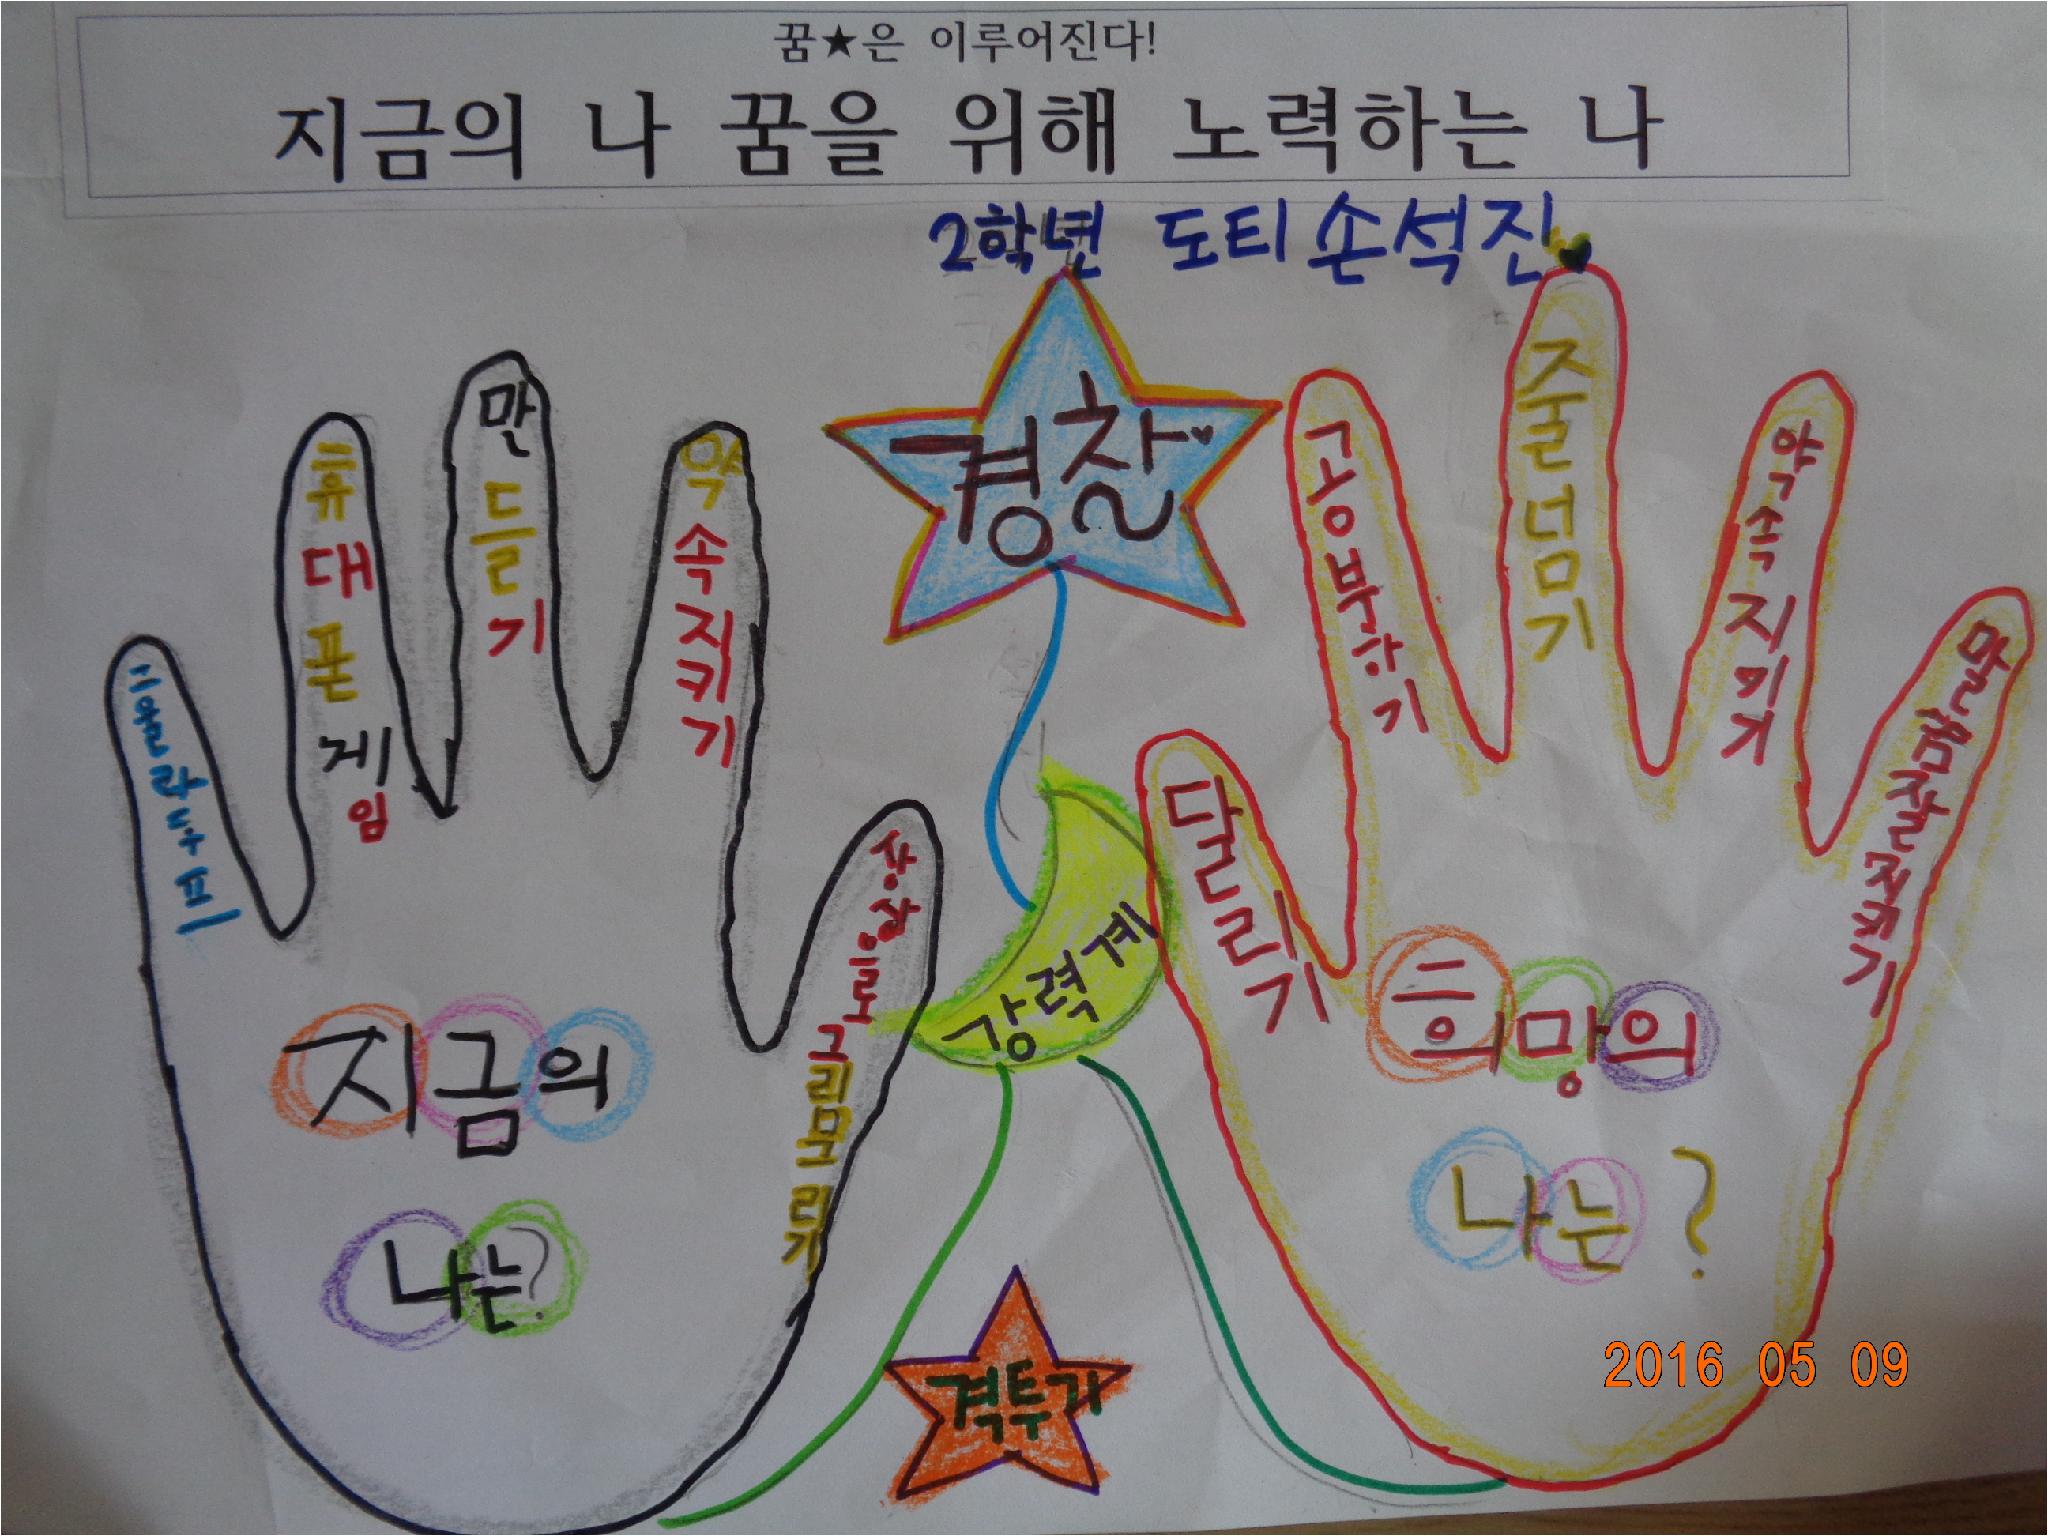 꿈★은 이루어진다!
지금의 나 꿈을 위해 노력하는 나
2학년 도티 손석진
경찰
강력계
격투기
휴대폰게임
만들기
약속지키기
상상으로그림그리기
지금의
나는?
달리기
공부하기
줄넘기
약속지키기
희망의
나는?
2016 05 09